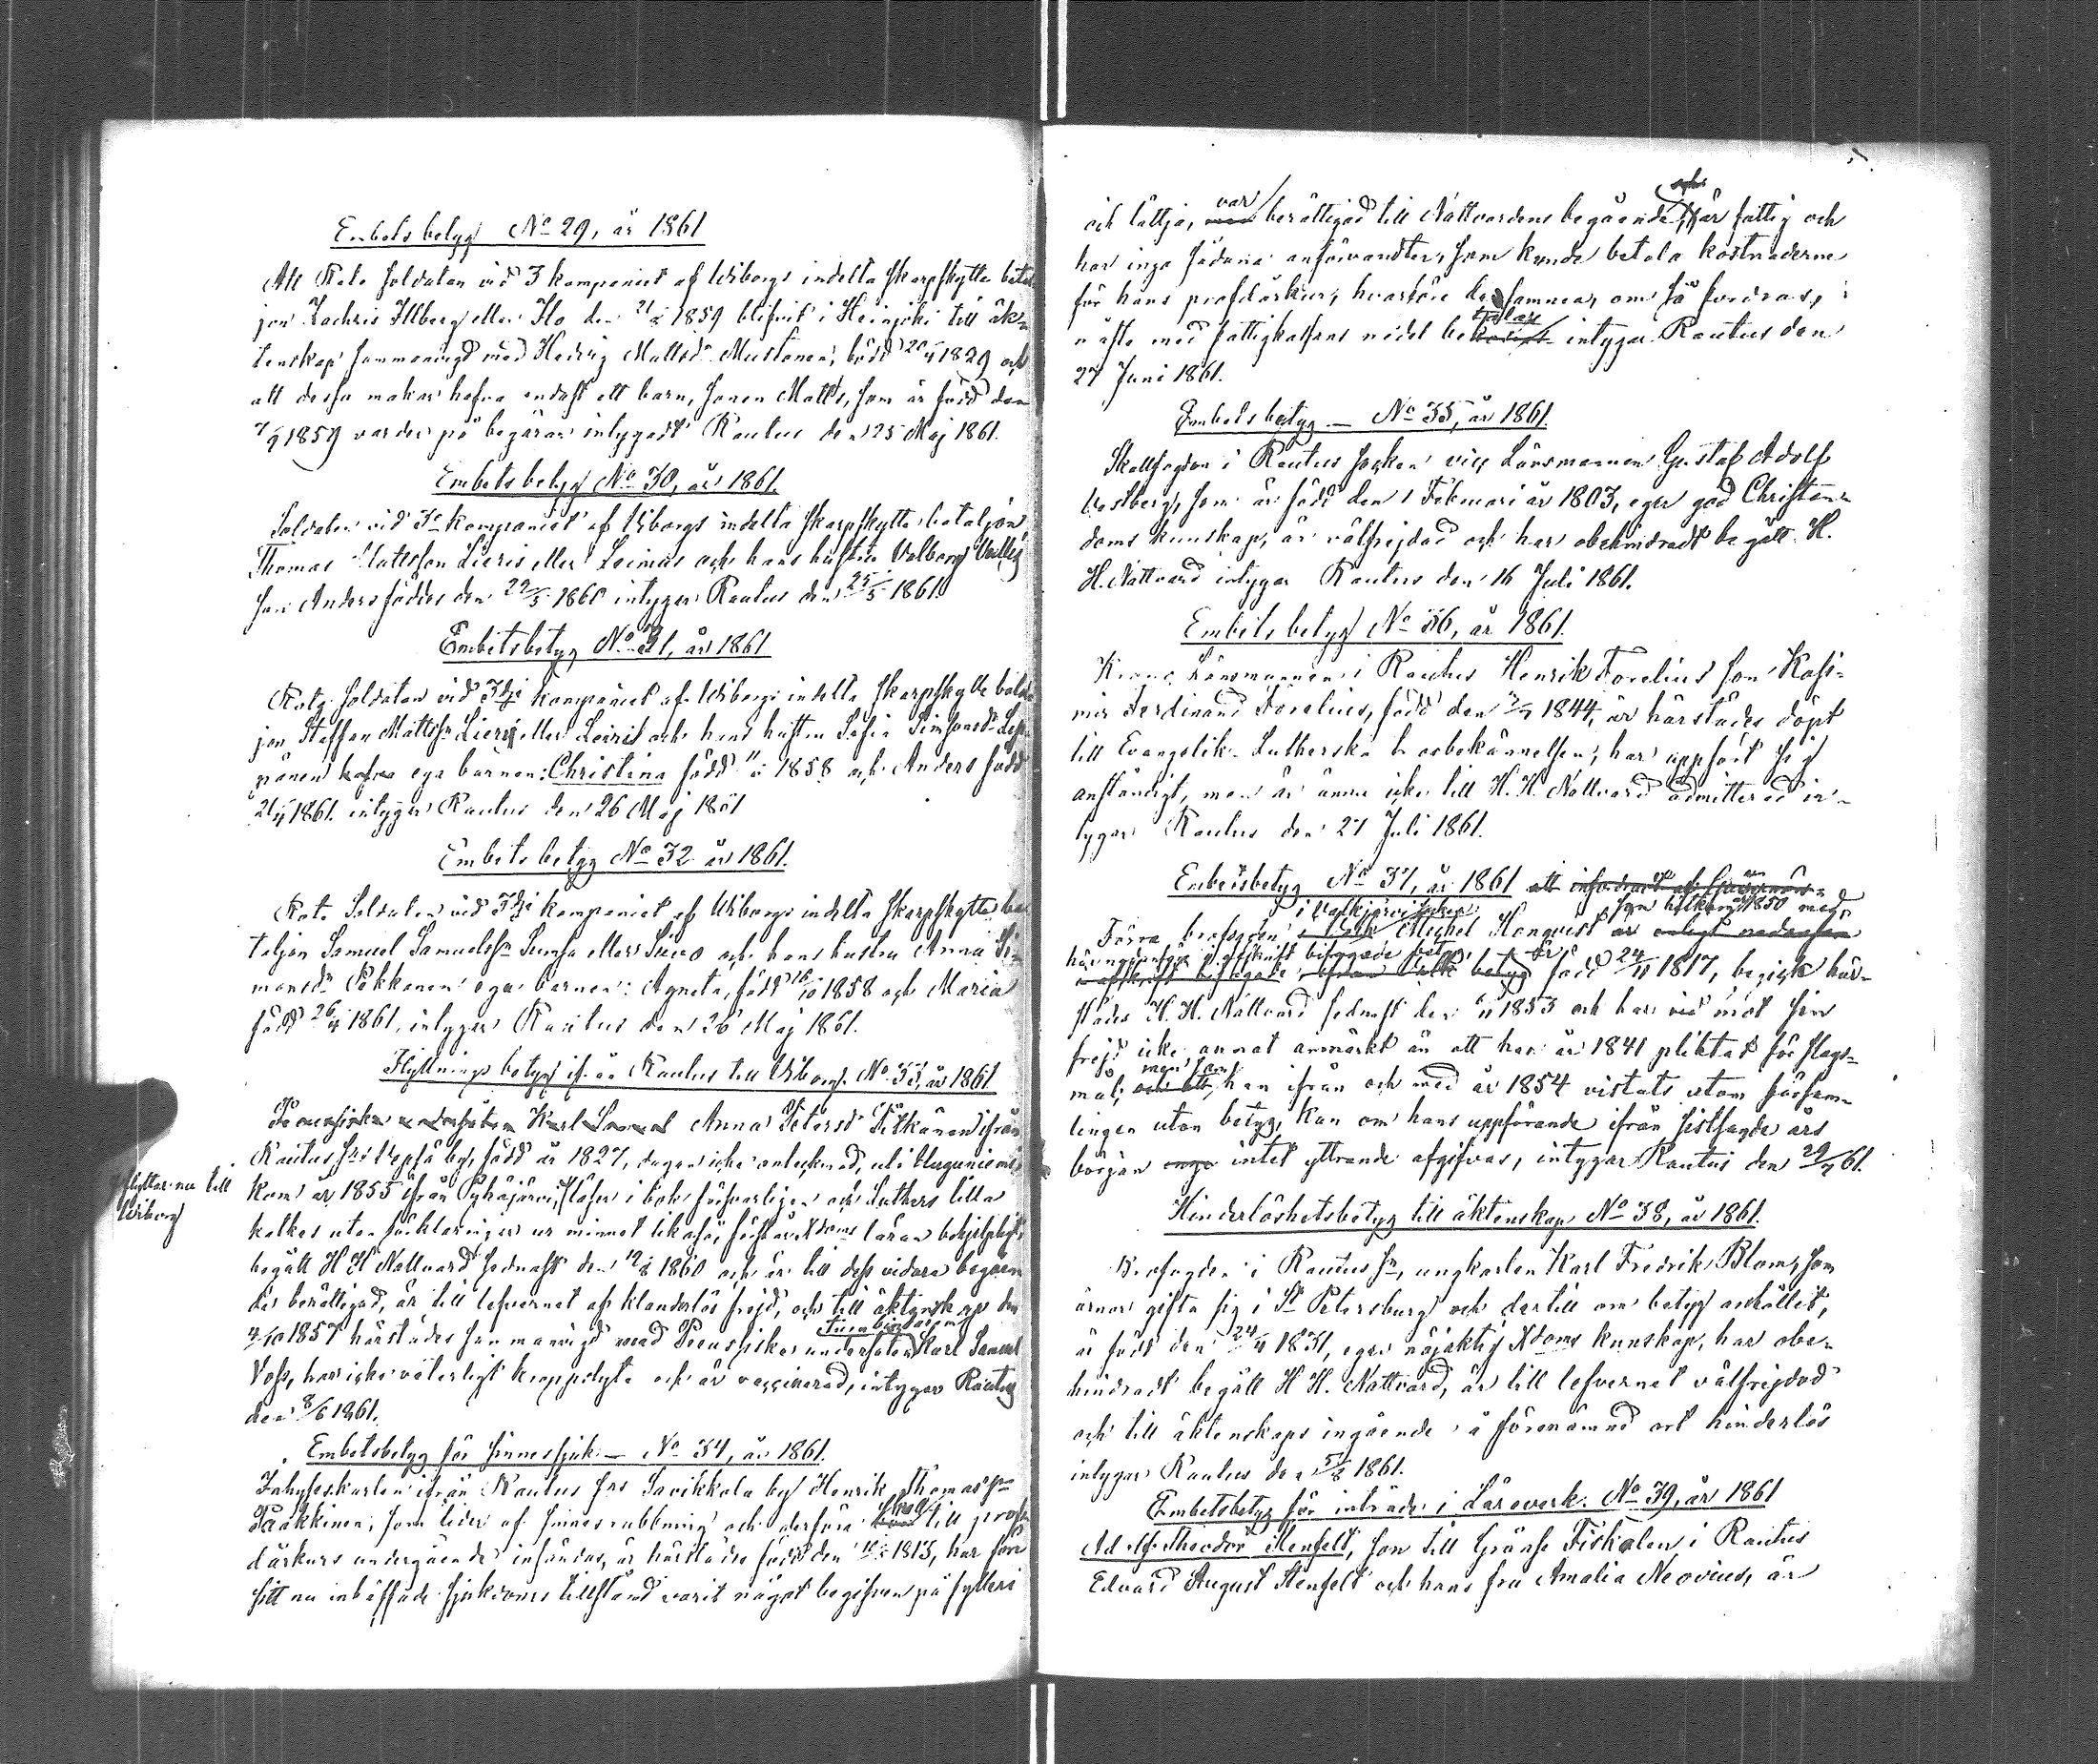 Embets betyg No 29, år 1861
Att Rote Soldaten vid 3 kompaniet af Wiborgs indelta Skarpskytte batal
jon Zachris Illberg eller Ilo den 21/ 1859 blifvit i Heinjoki till äk-
tenskap sammanvigd med Hedvig Mattsdr Mustonen, född 20/4 1829 och
att dessa makar hafva endast ett barn, sonen Matts, som är född den
7/9 1859 varder på begäran intygadt Rautus den 25 Maj 1861.
Embets betyg No 30, år 1861.
Soldaten vid 3e kompaniet af Wiborgs indelta skarpskytte bataljon
Thomas Mattsson Lieris eller Leimas och hans hustru Valborg
son Anders föddes den 22/5 1860 intygar Rautus den 25/5 1861.
Embetsbetyg No 31, år 1861
Rote Soldaten vid 3dje kompaniet af Wiborgs indelta Skarpskytte batal
jon Staffan Mattssn Lieris eller Leiris och hans hustru Sofia Simonsdr
pänen hafva ega barnen: Christina född 1858 och Anders född
21/4 1861. intygar Rautus den 26 Maj 1861
Embets betyg No 32 år 1861.
Rote Soldaten vid 3dje kompaniet af Wiborgs indelta Skarpskytte ba
taljon Samuel Samuelssn eller och hans hustru Anna Si-
monsdr Pekkanen ega barnen: Agneta, född 16/10 1858 och Maria
född 26/4 1861, intygar Rautus den 26 Maj 1861.
Flyttnings betyg ifrån Rautus till Wiborg. No 33, år 1861
Preussiska undersåten Karl Samuel Anna Petersdr Pitkänen ifrån
Rautus Sns by, född år 1827, dagen icke antecknad,
kom år 1855 ifrån Pyhäjärvi, läser i bok försvarligen och Luthers lilla
flyttar nu till
Wiborg
katkes utan förklaringen ur minnet likaså, förstår Xdoms läran behjelpligt,
begått H H Nattvard sednast den 12/ 1860 och är till dess vidare begåen
de berättigad, är till lefvernet af klanderlös frejd, och till äktenskap den
4/10 1857 härstädes sammanvigd med Preussiska undersåten Karl Samuel
Voss, har icke veterligt kroppslyte och är vaccinerad, intygar Rautus
den 8/6 1861.
Embetsbetyg för sinnessjuk — No 34, år 1861.
Inhyseskarlen ifrån Rautus Sns Savikkala by Henrik Thomassn
Paakkinen, som lider af sinnesrubbning och derföre skall till prof-
dårkurs undergående insändas, är härstädes född den 1813, har före
sitt nu inträffade sjukdoms tillstånd varit något begifven på fylleri
och lättja, var berättigad till Nattvardens begående, och är fattig och
har inga sådana anförvandter, som kunde betala kostnaderne
för hans profdårkur, hvarföre desamma, om så fordras,
måste med fattigkassans medel betalas intygar Rautus den
27 Juni 1861.
Embets betyg — No 35, år 1861.
Skallfogden i Rautus Socken vice Länsmannen Gustaf Adolf
som är född den 1 Februari år 1803, eger god Christen-
doms kunskap, är välfrejdad och har obehindradt begått H.
H. Nattvard intygar Rautus den 16 Juli 1861.
Embets betyg No 36, år 1861.
Krono Länsmannen i Rautus Henrik Forelius son Kasi-
mir Ferdinand Forelius, född den 1844, är härstädes döpt
till Evangelisk-Lutherska trosbekännelsen, har uppfört sig
anständigt, men är ännu icke till H. H. Nattvard admitterad in-
tygar Rautus den 27 Juli 1861.
Embetsbetyg No 37, år 1861
i Valkjärvi socken som hitkom 1850 med
Förra brofogden Michel Hanquist är enligt nedanstå
här i afskrift bifogade betyg, är född 24/11 1817, begick här-
städes H. H. Nattvard sednast den 6/11 1853 och har vid mot sin
frejd icke annat anmärkt än att han år 1841 pliktat för slags-
mål; men som han ifrån och med år 1854 vistats utom försam-
lingen utan betyg, kan om hans uppförande ifrån sistsagde års
början intet yttrande afgifvas, intygar Rautus den 29/7 61.
Hinderlöshetsbetyg till äktenskap No 38, år 1861.
Brofogden i Rautus Sn, ungkarlen Karl Fredrik Blom, som
ärnar gifta sig i St Petersburg och dertill om betyg anhållit,
är född den 24/4 1831, eger nöjaktig Xdoms kunskap, har obe-
hindradt begått H. H. Nattvard, är till lefvernet välfrejdad
och till äktenskaps ingående å förenämnd ort hinderlös
intygar Rautus den 5/8 1861.
Embetsbetyg för inträde i Läroverk. No 39, år 1861
Adolf Theodor Stenfelt, son till Gräns Fiskalen i Rautus
Edvard August Stenfelt och hans fru Amalia Neovius, är